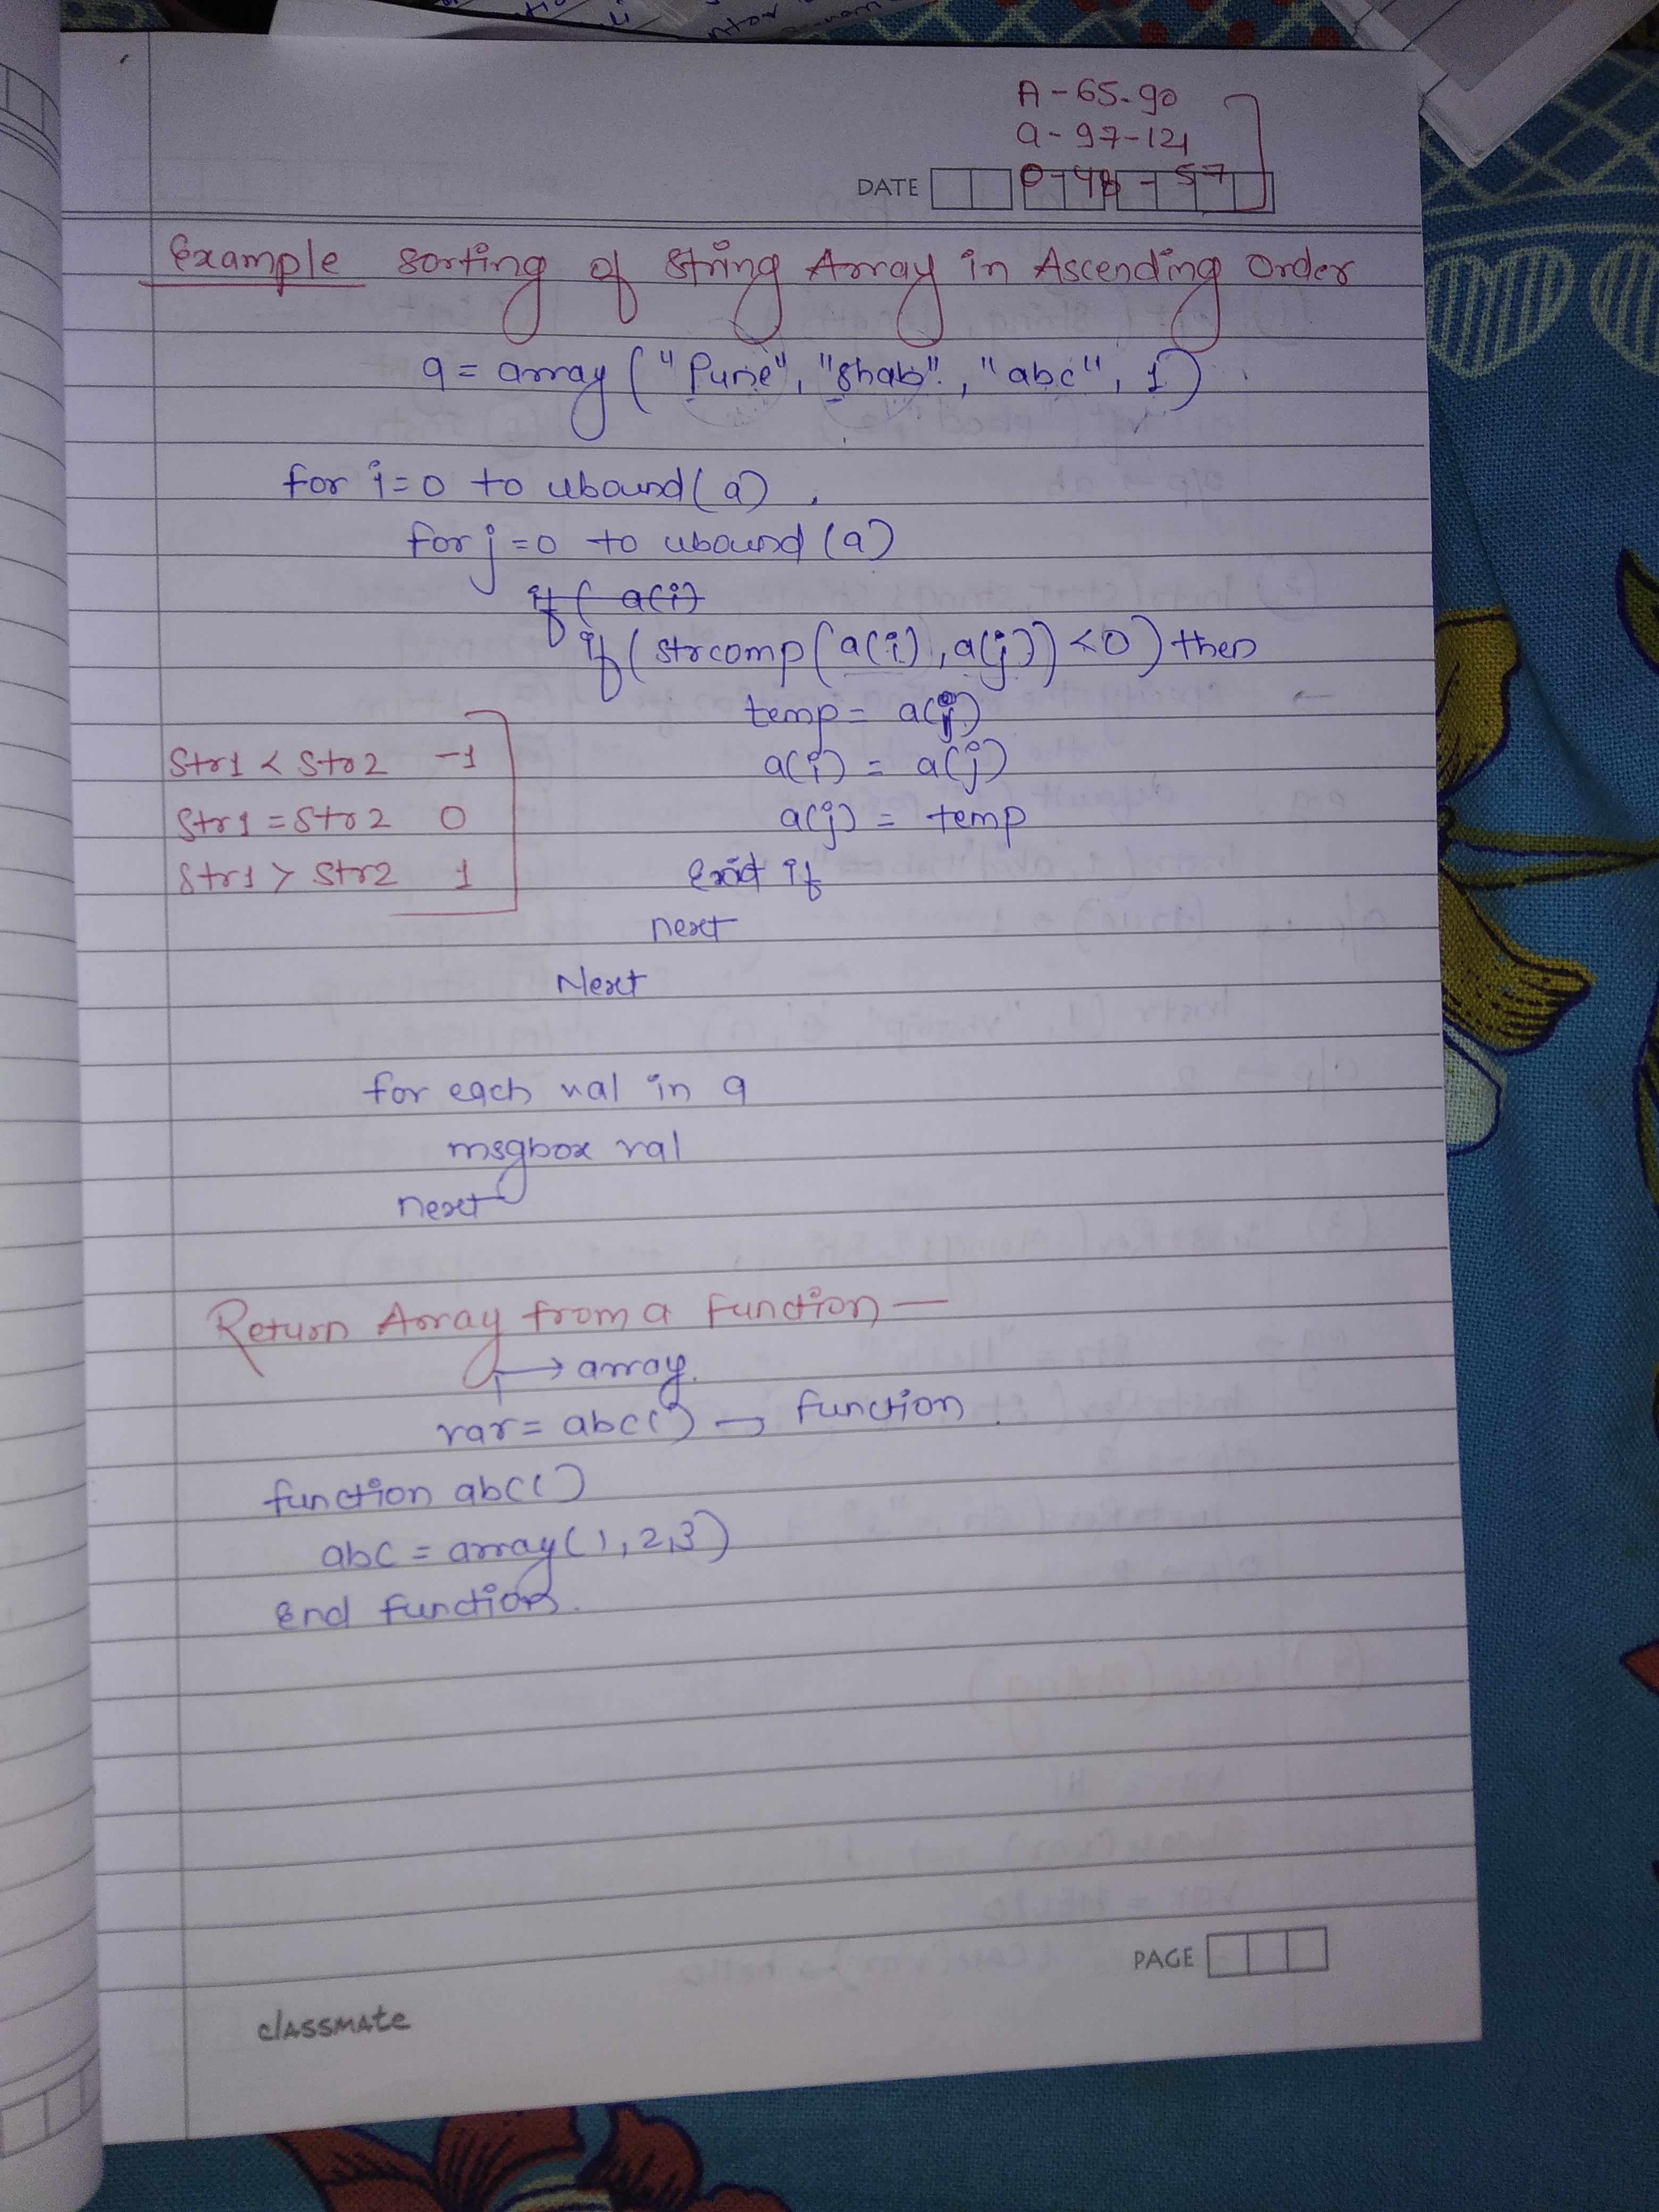 A - 65-90
a - 97-121
DATE 0-48 - 57
Example Sorting of String Array in Ascending Order
a = array ("Pune", "Shab", "abc", 1)
for i=0 to ubound(a)
for j=0 to ubound(a)
if ( a(i)
if (strcomp(a(i), a(j)) <0) then
temp = a(j)
a(i) = a(j)
Str1 < Str2 -1
a(j) = temp
Str1 = Str2 0
end if
Str1 > Str2 1
next
Next
for each val in a
msgbox val
next
Return Array from a function —
→ array.
var = abc() → function.
function abc()
abc = array(1,2,3)
End function.
PAGE
classmate